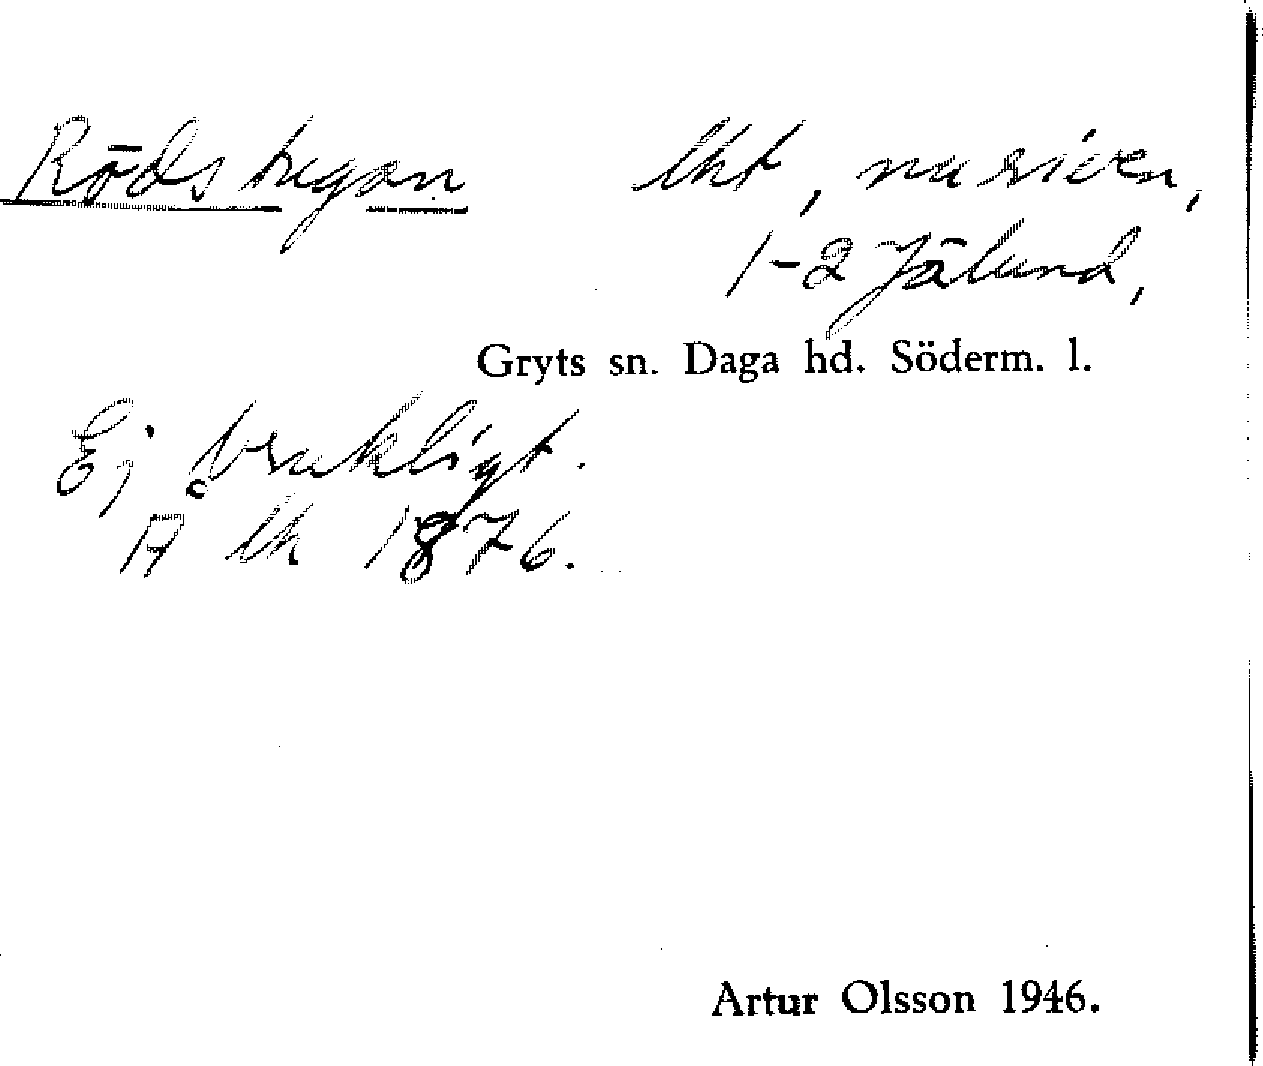 Rödstugan lht, nu riven,
1-2 Jälund,
Gryts sn. Daga hd. Söderm. l.
Ej brukligt.
A lh 1876.
Artur Olsson 1946.